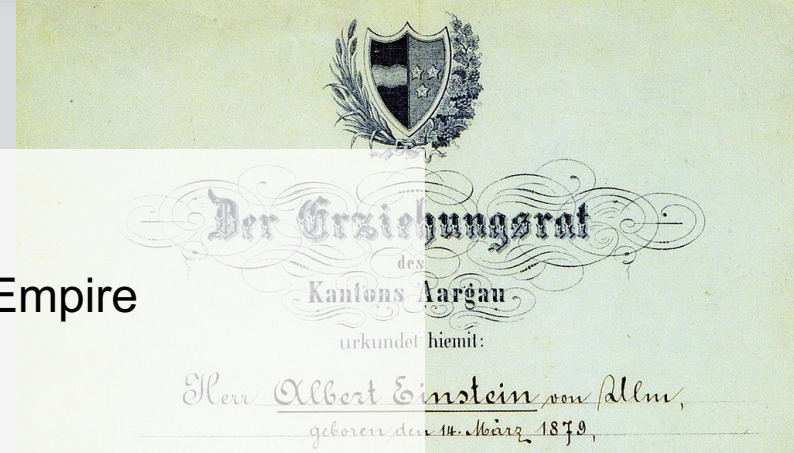 Der Erziehungsrat
des
Kantons Aargau
Empire
urkundet hiemit:
Herr Albert Einstein von Ulm,
geboren den 14. März 1879,